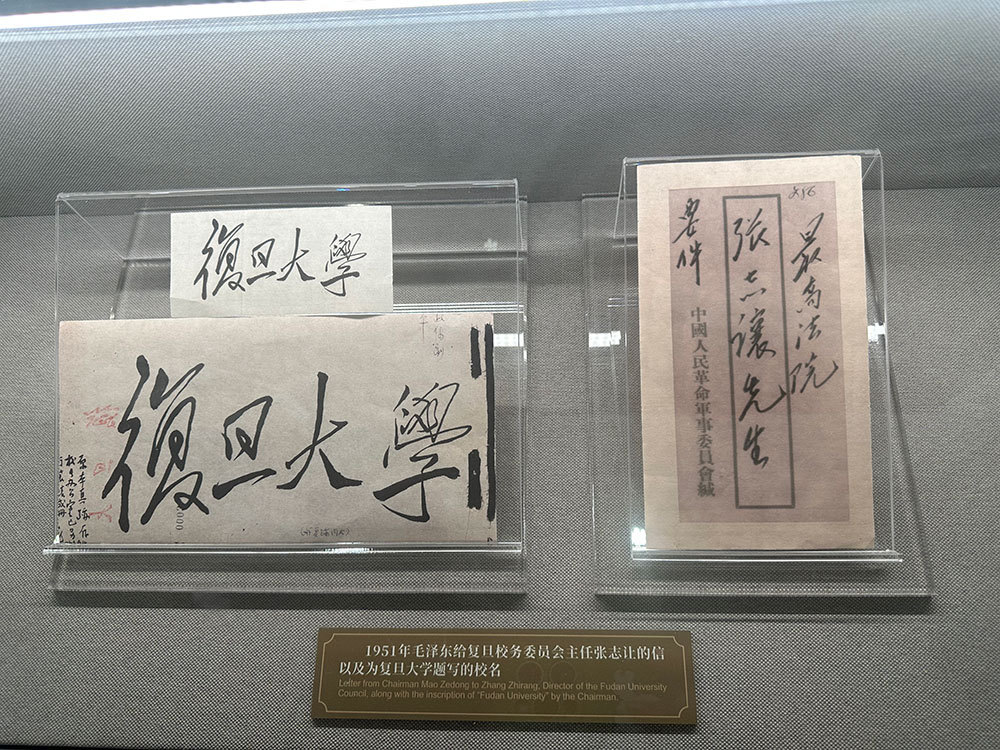 復旦大學
復旦大學
最高法院
張志讓先生
要件
中國人民革命軍事委員會緘
1951年毛泽东给复旦校务委员会主任张志让的信
以及为复旦大学题写的校名
Letter from Chairman Mao Zedong to Zhang Zhirang, Director of the Fudan University
Council, along with the inscription of "Fudan University" by the Chairman.